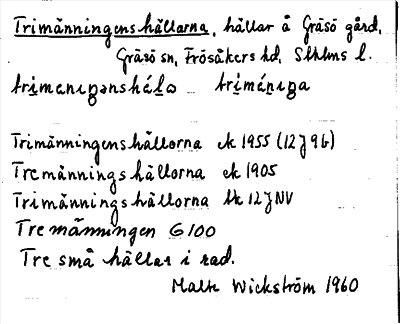 Trimänningenshällarna, hällar å Gräsö gård,
Gräsö sn, Frösåkers hd, Sthlms l.
Trimänningenshällorna ek 1955 (12J9b)
Tremänningshällorna ek 1905
Trimänningshällorna 12J NV
Tremänningen G100
Tre små hällar i rad.
Malte Wickström 1960